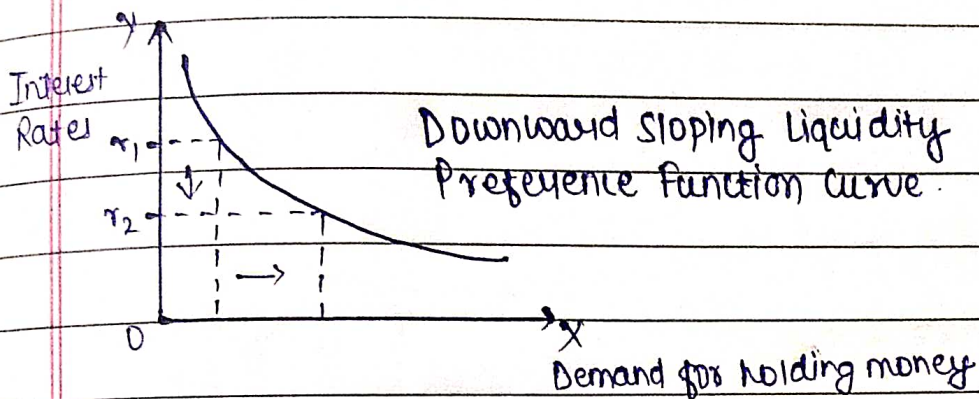 y
Interest
Rates
r₁
r₂
Downward Sloping Liquidity
Preference Function Curve.
O
X
Demand for holding money